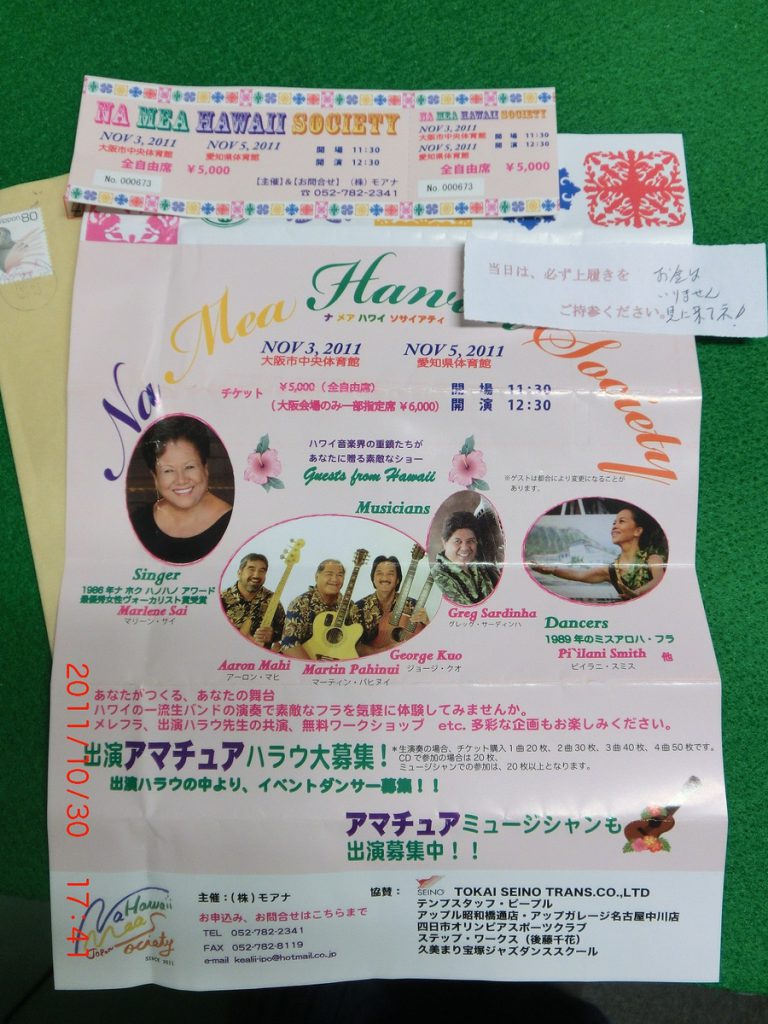 NA MEA HAWAII SOCIETY
NOV 3, 2011 NOV 5, 2011 開 場 11:30
大阪市中央体育館 愛知県体育館 開 演 12:30
全自由席 ¥5,000
No. 000673
【主催】&【お問合せ】 (株) モアナ
☎ 052-782-2341
NA MEA HAWAII SOCIETY
NOV 3, 2011
大阪市中央体育館 開 場 11:30
NOV 5, 2011 開 演 12:30
愛知県体育館
全自由席 ¥5,000
No. 000673
80
当日は、必ず上履きを
ご持参ください。
お金は
いりません
見に来てネ!
Na Mea Hawaii Society
ナ メア ハワイ ソサイアティ
NOV 3, 2011 NOV 5, 2011
大阪市中央体育館 愛知県体育館
チケット ¥5,000 (全自由席) 開 場 11:30
(大阪会場のみ一部指定席 ¥6,000) 開 演 12:30
ハワイ音楽界の重鎮たちが
あなたに贈る素敵なショー
Guests from Hawaii
※ゲストは都合により変更になることが
あります。
Musicians
Singer
1986年ナ ホク ハノハノ アワード
最優秀女性ヴォーカリスト賞受賞
Marlene Sai
マリーン・サイ
Aaron Mahi
アーロン・マヒ
Martin Pahinui
マーティン・パヒヌイ
George Kuo
ジョージ・クオ
Greg Sardinha
グレッグ・サーディンハ
Dancers
1989年のミスアロハ・フラ
Pi'ilani Smith 他
ピイラニ・スミス
あなたがつくる、あなたの舞台
ハワイの一流生バンドの演奏で素敵なフラを気軽に体験してみませんか。
メレフラ、出演ハラウ先生の共演、無料ワークショップ etc. 多彩な企画もお楽しみください。
出演アマチュアハラウ大募集!
*生演奏の場合、チケット購入1曲20枚、2曲30枚、3曲40枚、4曲50枚です。
CDで参加の場合は20枚、
ミュージシャンでの参加は、20枚以上となります。
出演ハラウの中より、イベントダンサー募集!!
アマチュアミュージシャンも
出演募集中!!
Na Hawaii
Mea
Society
JAPAN
SINCE 2011
主催:(株)モアナ
お申込み、お問合せはこちらまで
TEL 052-782-2341
FAX 052-782-8119
e-mail kealii-ipo@hotmail.co.jp
協賛: SEINO TOKAI SEINO TRANS.CO.,LTD
テンプスタッフ・ピープル
アップル昭和橋通店・アップガレージ名古屋中川店
四日市オリンピアスポーツクラブ
ステップ・ワークス(後藤千花)
久美まり宝塚ジャズダンススクール
2011/10/30 17:41